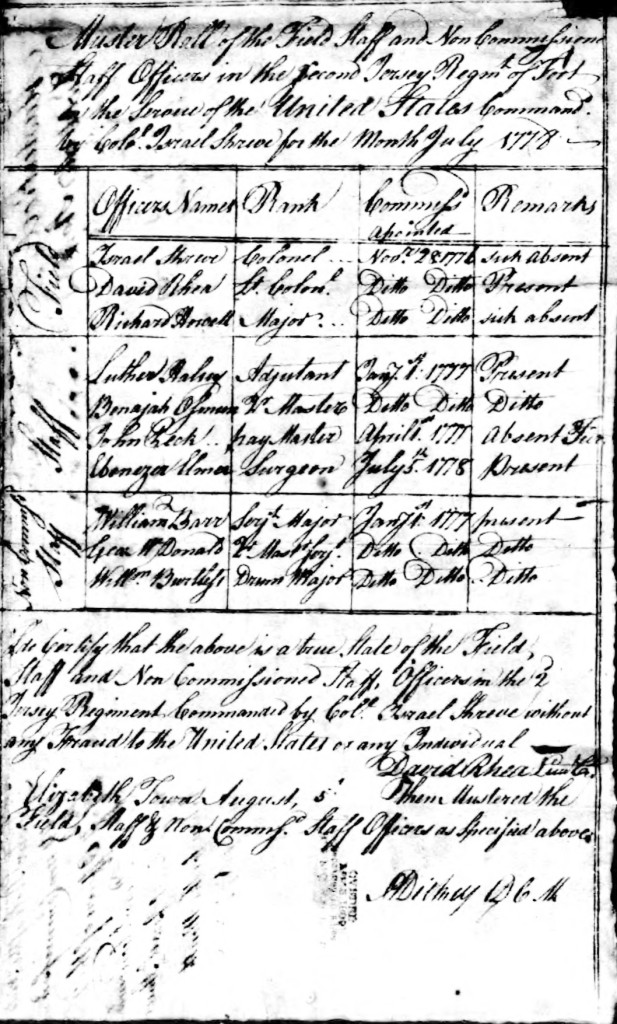 Muster Roll of the Field Staff and Non Commissione
Staff Officers in the Second Jersey Regmt. of Foot
in the Service of the United States Command.
by Colo. Israel Shreve for the Month July 1778
Officers Names Rank Commissd. apointed Remarks
Field
Israel Shreve Colonel Novr. 28 1776 sick absent
David Rhea Lt. Colonl. Ditto Ditto Present
Richard Howell Major Ditto Ditto sick absent
Staff
Luther Halsey Adjutant Jany. 1st. 1777 Present
Benajah Osmun Qr. Master Ditto Ditto Ditto
John Peck pay Master April 1st. 1777 Absent Fur
Ebenezer Elmer Surgeon July 5th. 1778 Present
Non Commissd Staff
William Barr Serjt. Major Jany 1st. 1777 present
Geo McDonald Qr. Mastr Serjt. Ditto Ditto Ditto
Willm Drum Major Ditto Ditto Ditto
I do Certify that the above is a true State of the Field,
Staff and Non Commissioned Staff, Officers in the 2
Jersey Regiment Commanded by Colo. Israel Shreve without
any Fraud to the United States or any Individual
David Rhea Lieut Co.
Elizabeth Town August, 5t Then Mustered the
Field, Staff & Non Commissd. Staff Officers as specified above
D C M